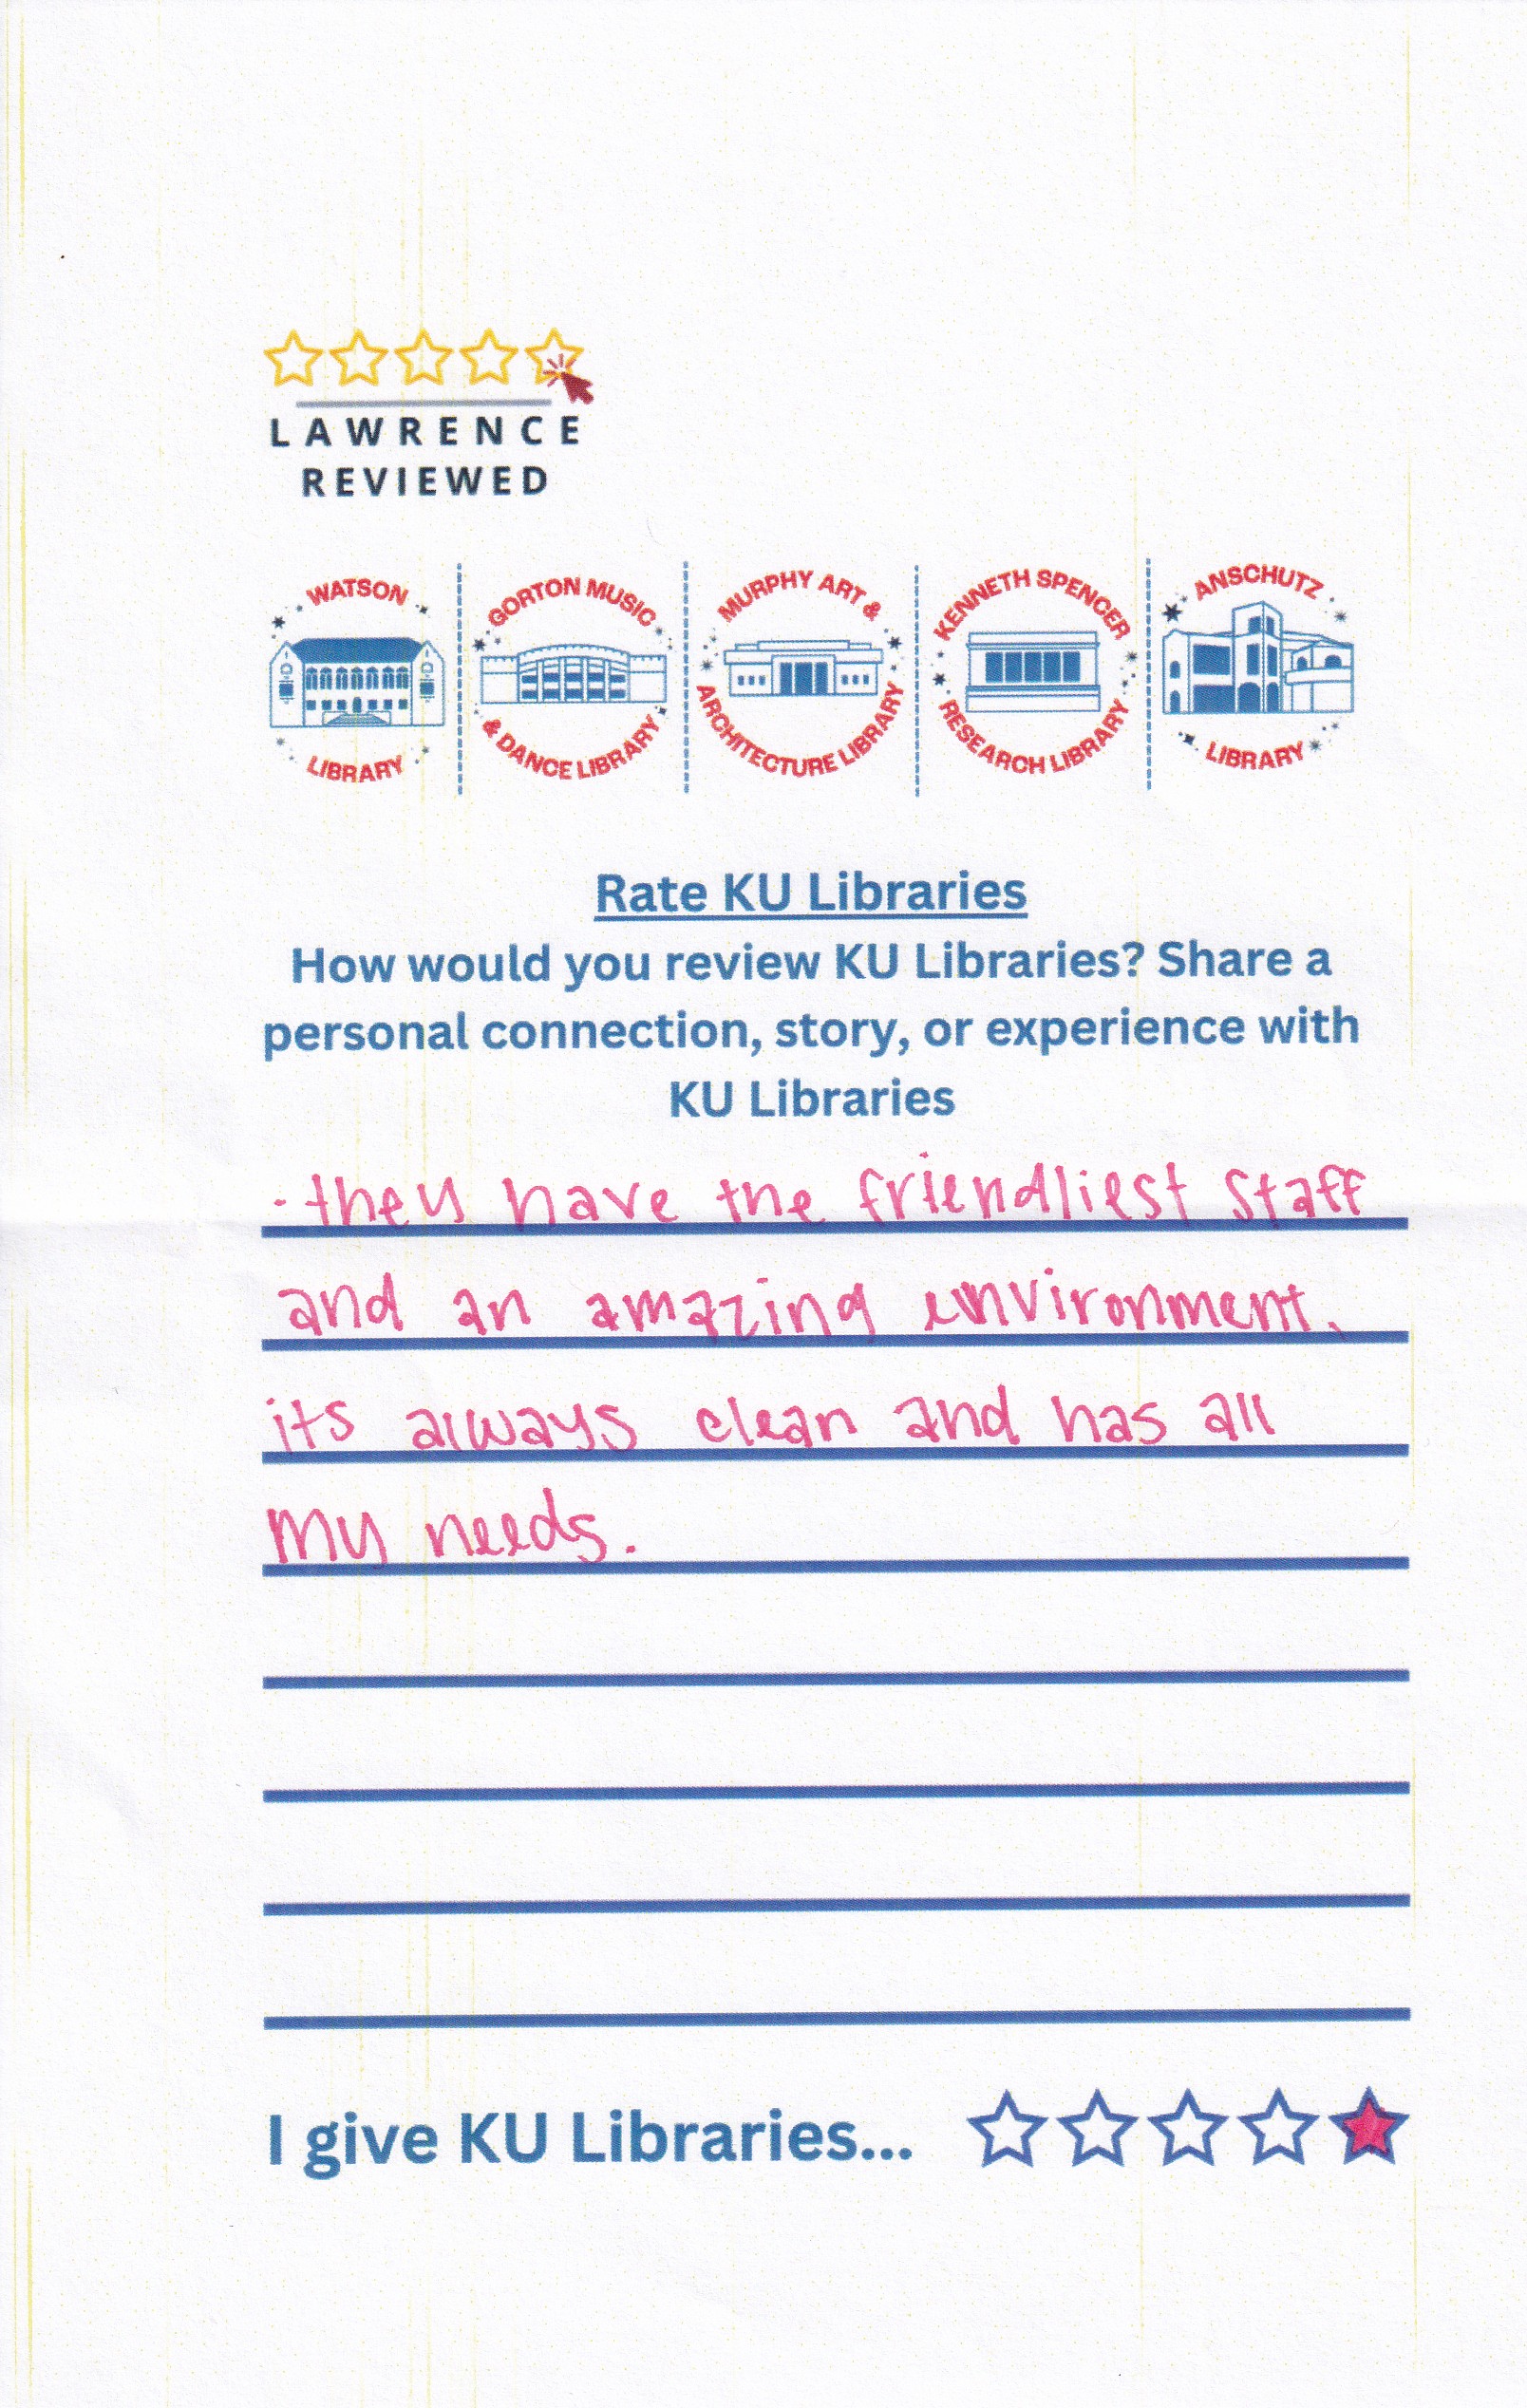 LAWRENCE
REVIEWED
WATSON LIBRARY
GORTON MUSIC & DANCE LIBRARY
MURPHY ART & ARCHITECTURE LIBRARY
KENNETH SPENCER RESEARCH LIBRARY
ANSCHUTZ LIBRARY
Rate KU Libraries
How would you review KU Libraries? Share a
personal connection, story, or experience with
KU Libraries
- they have the friendliest staff
and an amazing environment.
its always clean and has all
my needs.
I give KU Libraries...